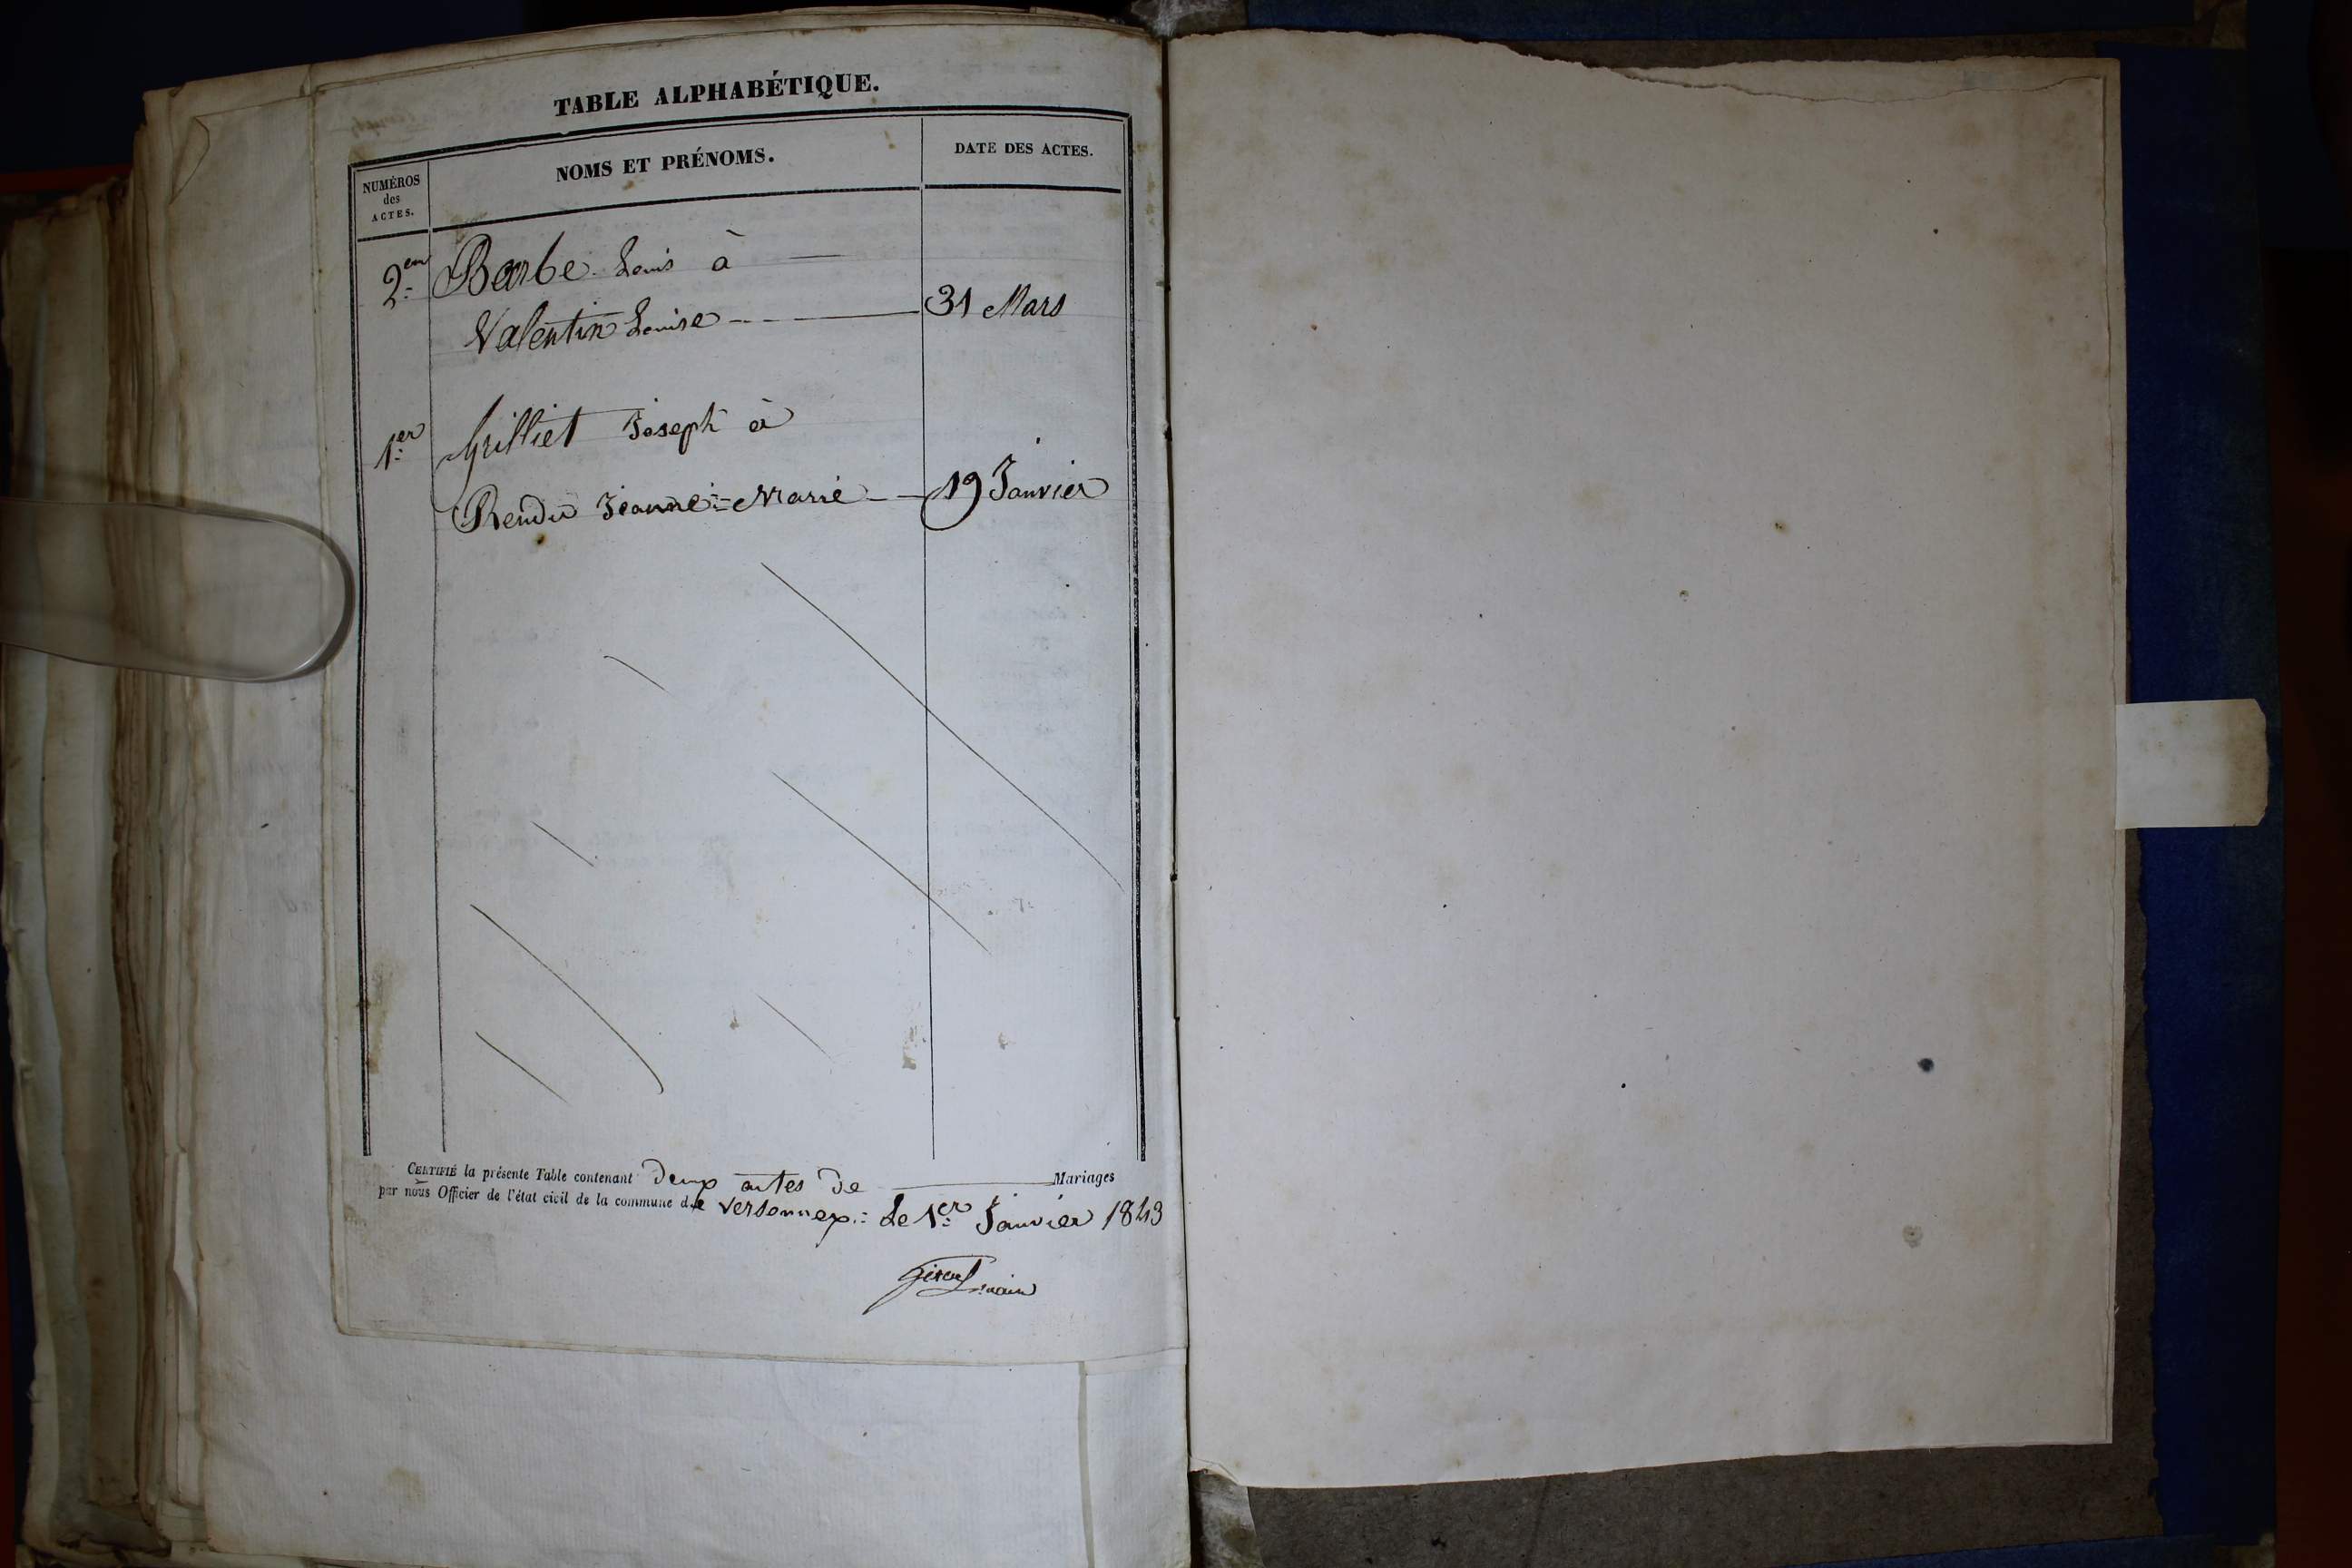 TABLE ALPHABÉTIQUE.
NUMÉROS
des
ACTES.
NOMS ET PRÉNOMS.
DATE DES ACTES.
2em Barbe Louis à
Valentin Louise 31 Mars
1er Grilliet Joseph à
Rendu Jeanne-Marie 19 Janvier
CERTIFIÉ la présente Table contenant deux actes de Mariages
par nous Officier de l'état civil de la commune de Versonnex: Le 1er Janvier 1843